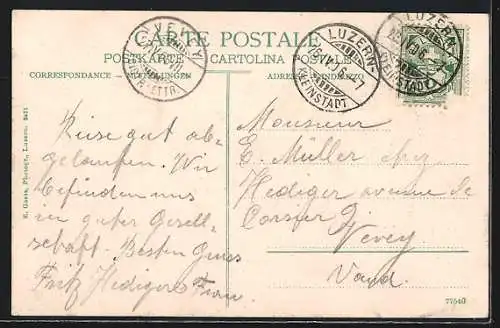 CARTE POSTALE
POSTKARTE CARTOLINA POSTALE
CORRESPONDANCE — MITTEILUNGEN
ADRESSE
VEVEY
LETTR.
LUZERN
KLEINSTADT
LUZERN
KLEINSTADT
Reise gut ab-
gelaufen. Wir
befinden uns
in guter Gesell-
schaft. Besten Gruss
Fritz Hediger Frau
Monsieur
E. Müller chez
Hediger avenue de
Corsier 9
Vevey
Vaud.
E. Goetz, Photogr., Luzern.
77540